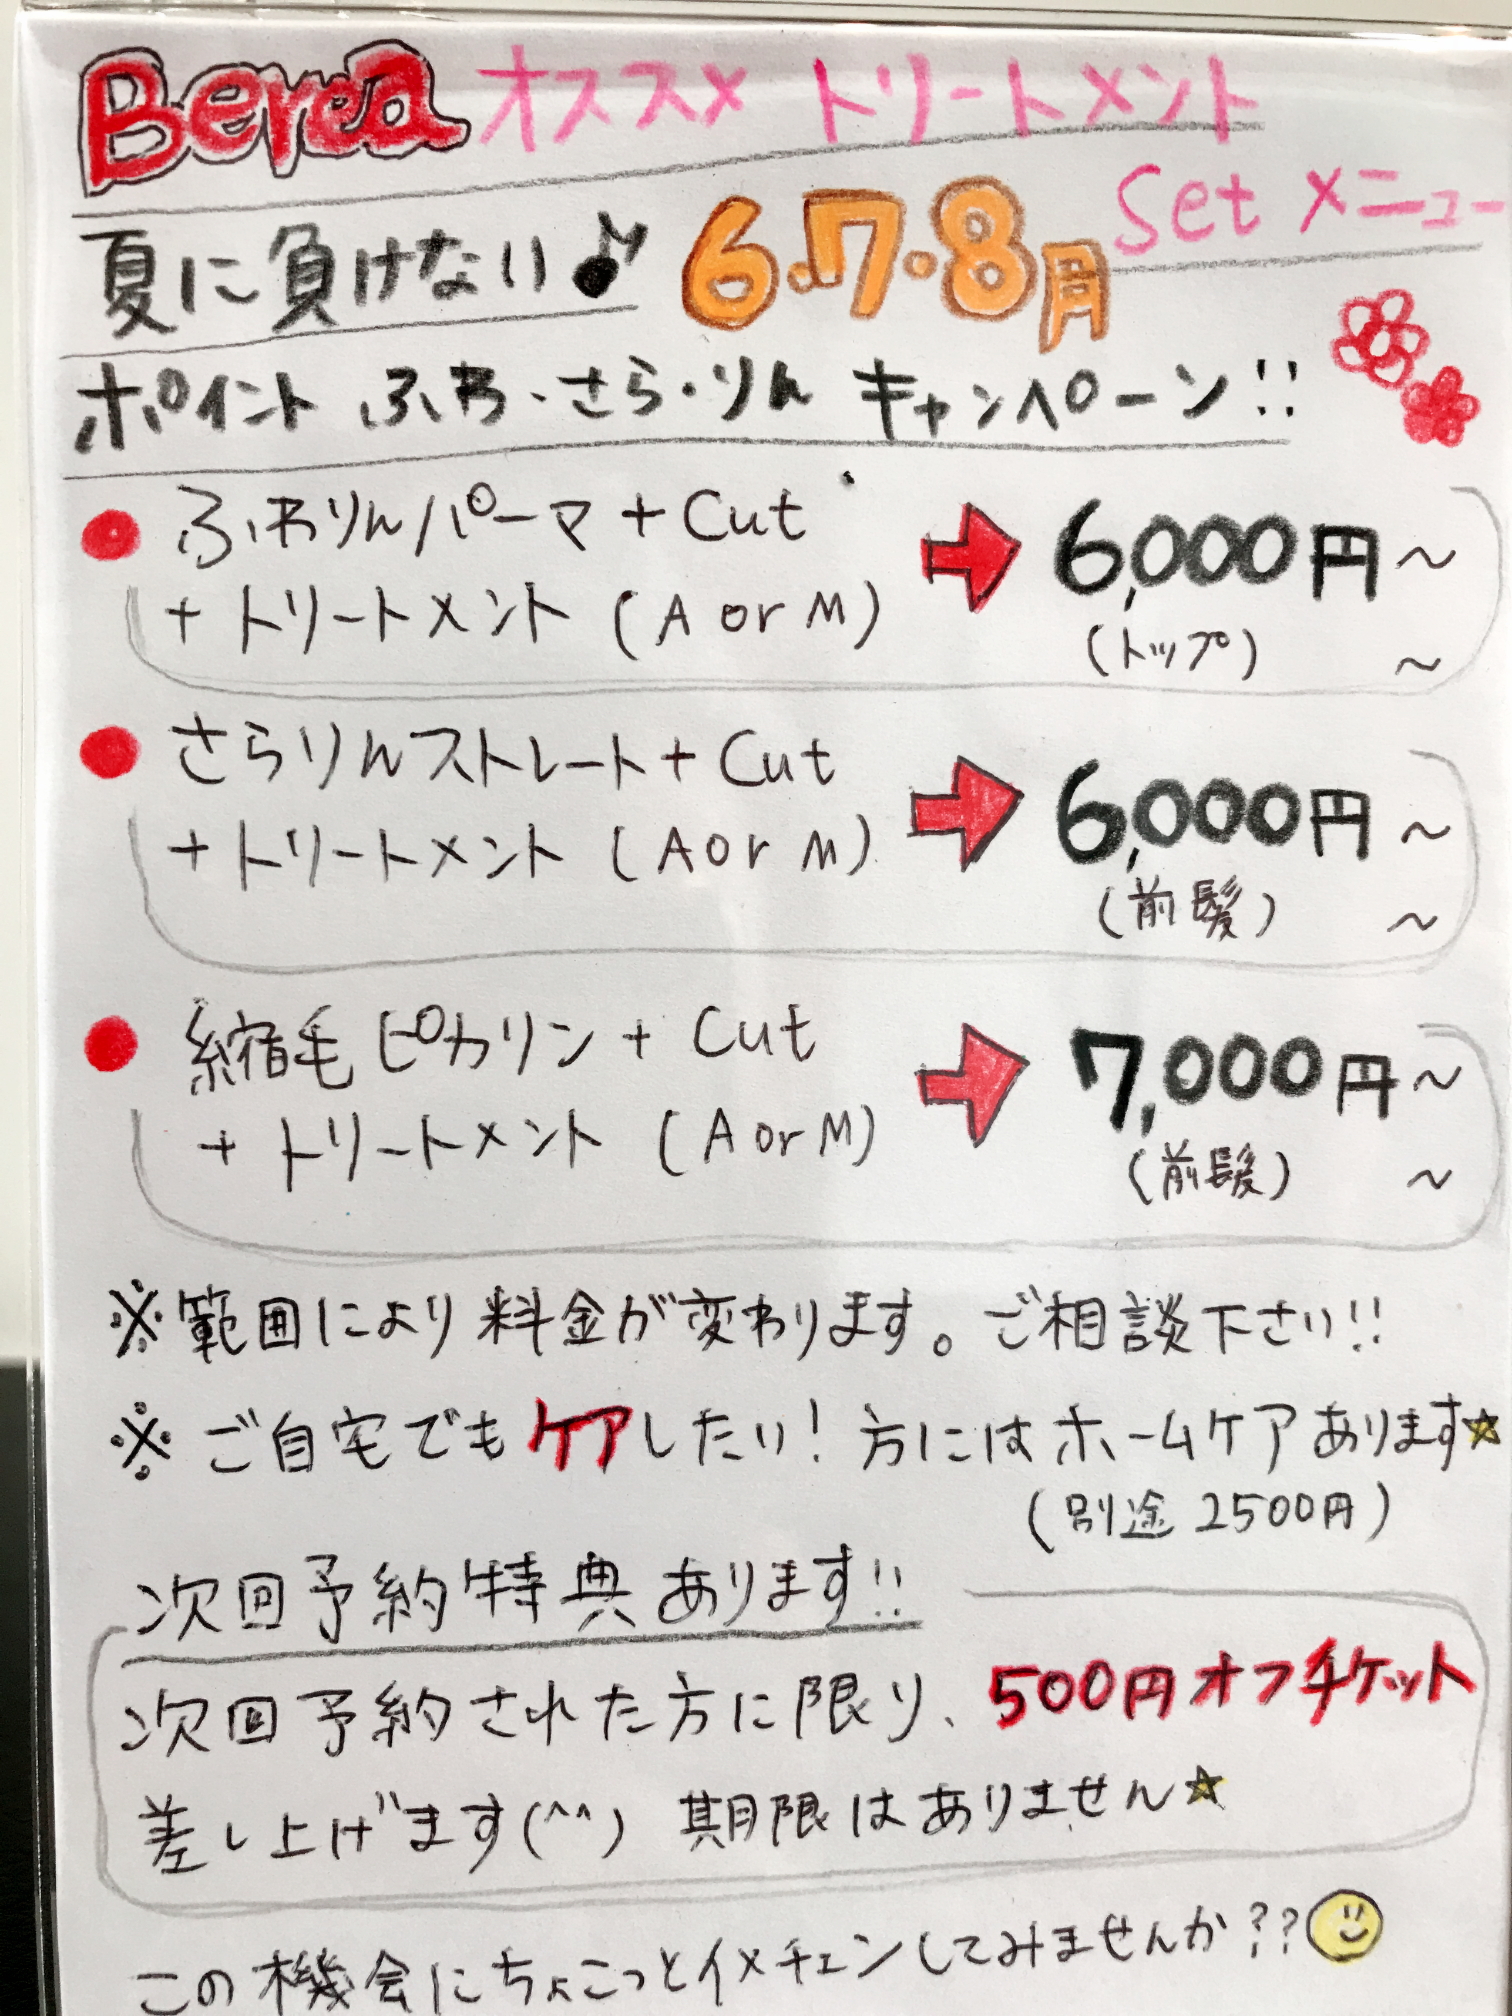 Berea オススメ トリートメント
Set メニュー
夏に負けない♪ 6.7.8月
ポイント ふわ・さら・りん キャンペーン!!
● ふわりんパーマ + Cut ➡ 6,000円～
+ トリートメント (A or M) (トップ) ～
● さらりんストレート + Cut ➡ 6,000円～
+ トリートメント (A or M) (前髪) ～
● 縮毛ピカリン + Cut ➡ 7,000円～
+ トリートメント (A or M) (前髪) ～
※範囲により料金が変わります。ご相談下さい!!
※ご自宅でもケアしたい! 方にはホームケアあります☆
(別途 2500円)
次回予約特典あります!!
次回予約された方に限り、500円オフチケット
差し上げます(^^) 期限はありません☆
この機会にちょこっとイメチェンしてみませんか??